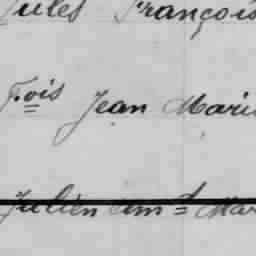 Jules François
Fois Jean Marie
Julien Aimé Mar